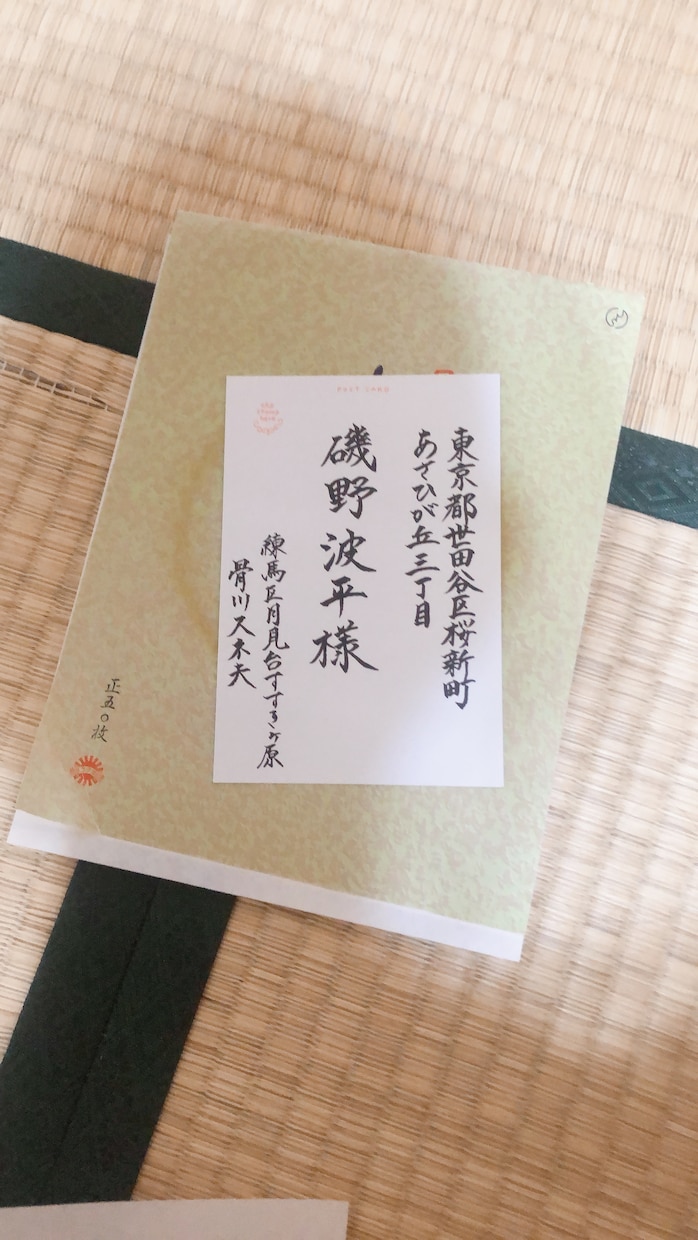 POST CARD
東京都世田谷区桜新町
あさひが丘三丁目
磯野波平様
練馬区月見台すすきヶ原
骨川スネ夫
正五〇枚